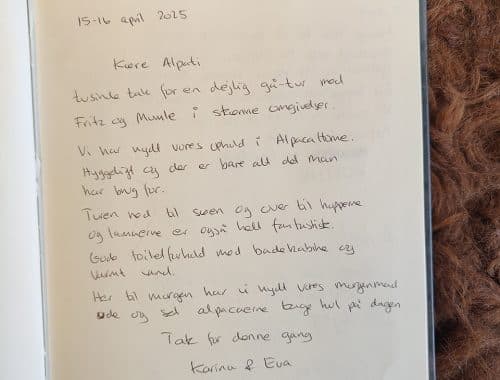 15-16 april 2025
Kære Alpati
tusinde tak for en dejlig gå-tur med
Fritz og Mumle i skønne omgivelser.
Vi har nydt vores ophold i AlpacaHome.
Hyggeligt og der er bare alt det man
har brug for.
Turen ned til søen og over til hopperne
og lamaerne er også helt fantastisk.
Gode toiletforhold med badekabine og
varmt vand.
Her til morgen har vi nydt vores morgenmad
ude og set alpacaerne tage hul på dagen
Tak for denne gang
Karina & Eva